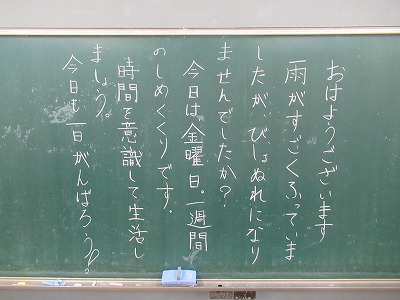 おはようございます
雨がすごくふっていま
したが、びしょぬれになり
ませんでしたか?
今日は金曜日。一週間
のしめくくりです。
時間を意識して生活し
ましょう。
今日も一日がんばろう。